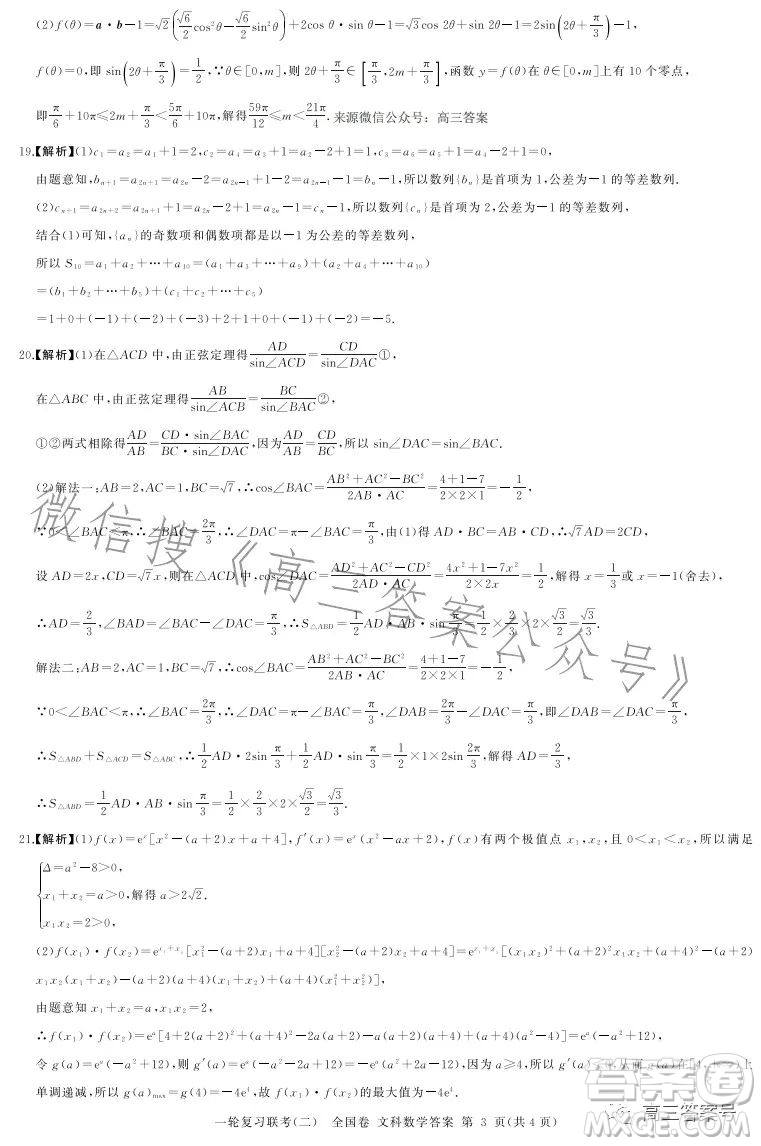 (2)f(θ)=a·b-1=√2(√6/2cos²θ-√6/2sin²θ)+2cos θ·sin θ-1=√3cos 2θ+sin 2θ-1=2sin(2θ+π/3)-1,
f(θ)=0,即 sin(2θ+π/3)=1/2,∵θ∈[0,m],则 2θ+π/3∈[π/3,2m+π/3],函数 y=f(θ)在 θ∈[0,m]上有 10 个零点,
即π/6+10π≤2m+π/3<5π/6+10π,解得59π/12≤m<21π/4. 来源微信公众号：高三答案
19.【解析】(1)c₁=a₂=a₁+1=2,c₂=a₄=a₃+1=a₂-2+1=1,c₃=a₆=a₅+1=a₄-2+1=0,
由题意知,bₙ₊₁=a₂ₙ₊₁=a₂ₙ-2=a₂ₙ₋₁+1-2=a₂ₙ₋₁-1=bₙ-1,所以数列{bₙ}是首项为 1,公差为-1的等差数列.
(2)cₙ₊₁=a₂ₙ₊₂=a₂ₙ₊₁+1=a₂ₙ-2+1=a₂ₙ-1=cₙ-1,所以数列{cₙ}是首项为 2,公差为-1的等差数列,
结合(1)可知,{aₙ}的奇数项和偶数项都是以-1 为公差的等差数列,
所以 S₁₀=a₁+a₂+…+a₁₀=(a₁+a₃+…+a₉)+(a₂+a₄+…+a₁₀)
=(b₁+b₂+…+b₅)+(c₁+c₂+…+c₅)
=1+0+(-1)+(-2)+(-3)+2+1+0+(-1)+(-2)=-5.
20.【解析】(1)在△ACD 中,由正弦定理得AD/sin∠ACD=CD/sin∠DAC①,
在△ABC 中,由正弦定理得AB/sin∠ACB=BC/sin∠BAC②,
①②两式相除得AD/AB=CD·sin∠BAC/BC·sin∠DAC,因为AD/AB=CD/BC,所以 sin∠DAC=sin∠BAC.
(2)解法一:AB=2,AC=1,BC=√7,∴cos∠BAC=AB²+AC²-BC²/2AB·AC=4+1-7/2×2×1=-1/2,
∵0<∠BAC<π,∴∠BAC=2π/3,∴∠DAC=π-∠BAC=π/3,由(1)得 AD·BC=AB·CD,∴√7AD=2CD,
设 AD=2x,CD=√7x,则在△ACD 中,cos∠DAC=AD²+AC²-CD²/2AD·AC=4x²+1-7x²/2×2x=1/2,解得 x=1/3或 x=-1(舍去),
∴AD=2/3,∠BAD=∠BAC-∠DAC=π/3,∴S△ABD=1/2AD·AB·sinπ/3=1/2×2/3×2×√3/2=√3/3.
解法二:AB=2,AC=1,BC=√7,∴cos∠BAC=AB²+AC²-BC²/2AB·AC=4+1-7/2×2×1=-1/2,
∵0<∠BAC<π,∴∠BAC=2π/3,∴∠DAC=π-∠BAC=π/3,∠DAB=2π/3-∠DAC=π/3,即∠DAB=∠DAC=π/3,
∴S△ABD+S△ACD=S△ABC,∴1/2AD·2sinπ/3+1/2AD·sinπ/3=1/2×1×2sin2π/3,解得 AD=2/3,
∴S△ABD=1/2AD·AB·sinπ/3=1/2×2/3×2×√3/2=√3/3.
21.【解析】(1)f(x)=eˣ[x²-(a+2)x+a+4],f′(x)=eˣ(x²-ax+2),f(x)有两个极值点 x₁,x₂,且 0<x₁<x₂,所以满足
Δ=a²-8>0,
x₁+x₂=a>0,解得 a>2√2.
x₁x₂=2>0,
(2)f(x₁)·f(x₂)=eˣ¹⁺ˣ²[x₁²-(a+2)x₁+a+4][x₂²-(a+2)x₂+a+4]=eˣ¹⁺ˣ²[(x₁x₂)²+(a+2)²x₁x₂+(a+4)²-(a+2)
x₁x₂(x₁+x₂)-(a+2)(a+4)(x₁+x₂)+(a+4)(x₁²+x₂²)],
由题意知 x₁+x₂=a,x₁x₂=2,
∴f(x₁)·f(x₂)=eᵃ[4+2(a+2)²+(a+4)²-2a(a+2)-a(a+2)(a+4)+(a+4)(a²-4)]=eᵃ(-a²+12),
令 g(a)=eᵃ(-a²+12),则 g′(a)=eᵃ(-a²-2a+12),因为 a≥4,所以 g′(a)
单调递减,所以 g(a)max=g(4)=-4e⁴,故 f(x₁)·f(x₂)的最大值为-4e⁴.
一轮复习联考(二) 全国卷 文科数学答案 第 3 页(共 4 页)
微信搜《高三答案公众号》
答案圈
高三答案号